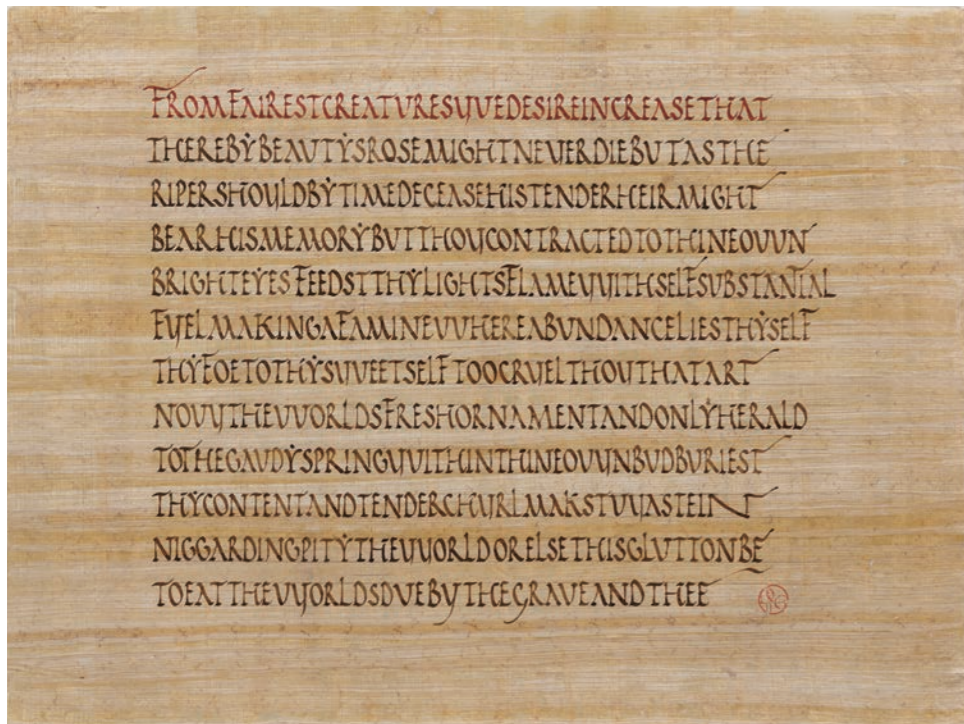 FROMFAIRESTCREATURESVVEDESIREINCREASETHAT
THEREBẎBEAUTẎSROSEMIGHTNEVERDIEBUTASTHE
RIPERSHOULDBẎTIMEDECEASEHISTENDERHEIRMIGHT
BEARHISMEMORẎBUTTHOUCONTRACTEDTOTHINEOVVN
BRIGHTEẎESFEEDSTTHẎLIGHTSFLAMEVVITHSELFSUBSTANTIAL
FUELMAKINGAFAMINEVVHEREABUNDANCELIESTHẎSELF
THẎFOETOTHẎSVVEETSELFTOOCRUELTHOUTHATART
NOVVTHEVVORLDSFRESHORNAMENTANDONLẎHERALD
TOTHEGAUDẎSPRINGVVITHINTHINEOVVNBUDBURIEST
THẎCONTENTANDTENDERCHURLMAKSTVVASTEIN
NIGGARDINGPITẎTHEVVORLDORELSETHISGLUTTONBE
TOEATTHEVVORLDSDUEBYTHEGRAVEANDTHEE